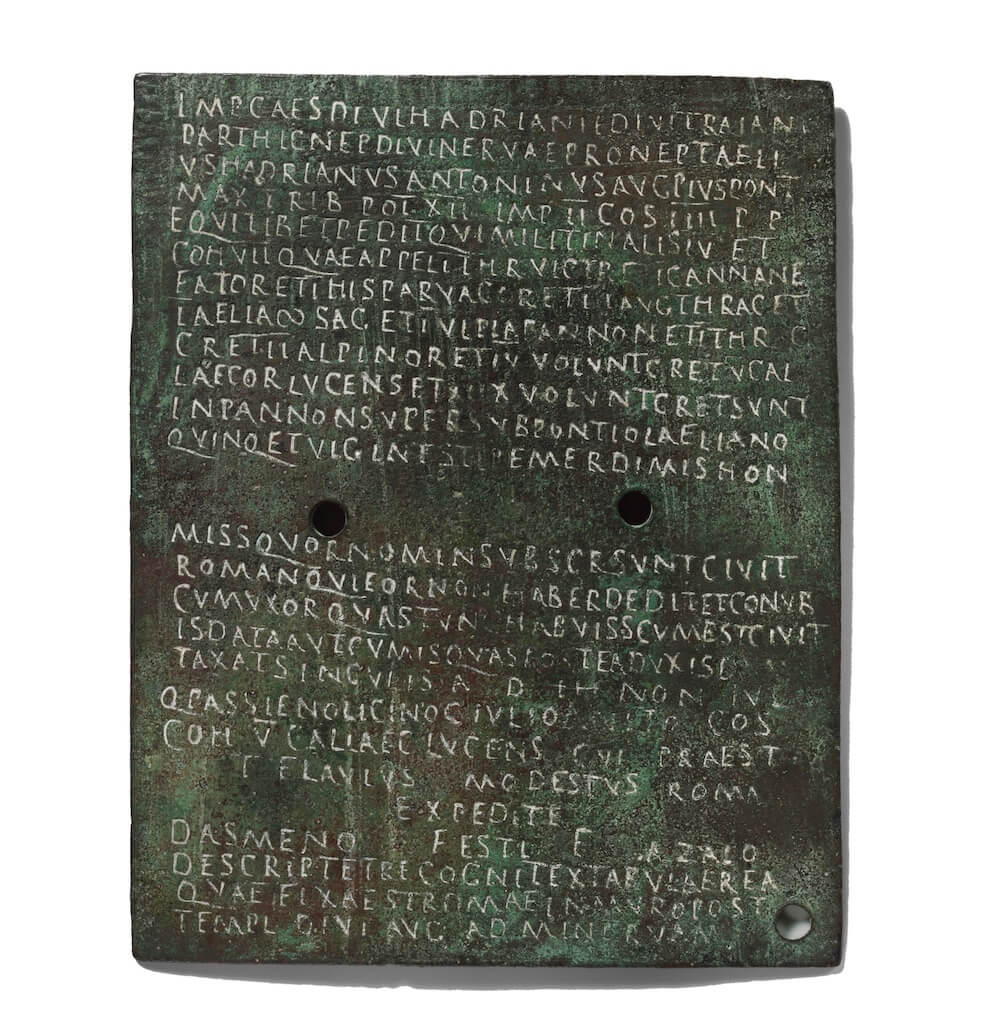 IMPCAESDIVIHADRIANIFDIVITRAIANI
PARTHICNEPDIVINERVAEPRONEPTAELI
VSHADRIANVSANTONINVSAVGPIVSPONT
MAXTRIB POTXII IMP II COS IIII P P
EQVITIBETPEDITQVIMILITINALISIV ET
COHVIIQVAEAPPELITHRVICTRETICANNANE
FATORETIHISPARVACORETIIIAVGTHRACET
LAELIAN SAGETIVLPIAPANNONETITHRAC
CRETIIALPINORETIV VOLVNTCRETVCAL
LAECORLVCENSETXIIXVOLVNTCRETSVNT
INPANNONSVPERSVBPONTIOLAELIANO
QVINQETVIGINTSTIPEMERDIMISHON
MISSQVORNOMINSVBSCRSVNTCIVIT
ROMANQVIEORNONHABERDEDITETCONVB
CVMVXORQVASTVNCHABVISSCVMESTCIVIT
ISDATAAVTCVMISQVASPOSTEADVXISD
TAXATSINGVLIS A D III NON IVL
QPASSIENOLICINOCIVLIOAVITO COS
COH V CALLAEC LVCENS CVI PRAEST
T FLAVIVS MODESTVS ROMA
EXPEDITE
DASMENO FESTI F AZALO
DESCRIPTETRECOGNITEXTABVLAEREA
QVAEFIXAESTROMAEINMVROPOST
TEMPL DIVI AVG AD MINERVAM